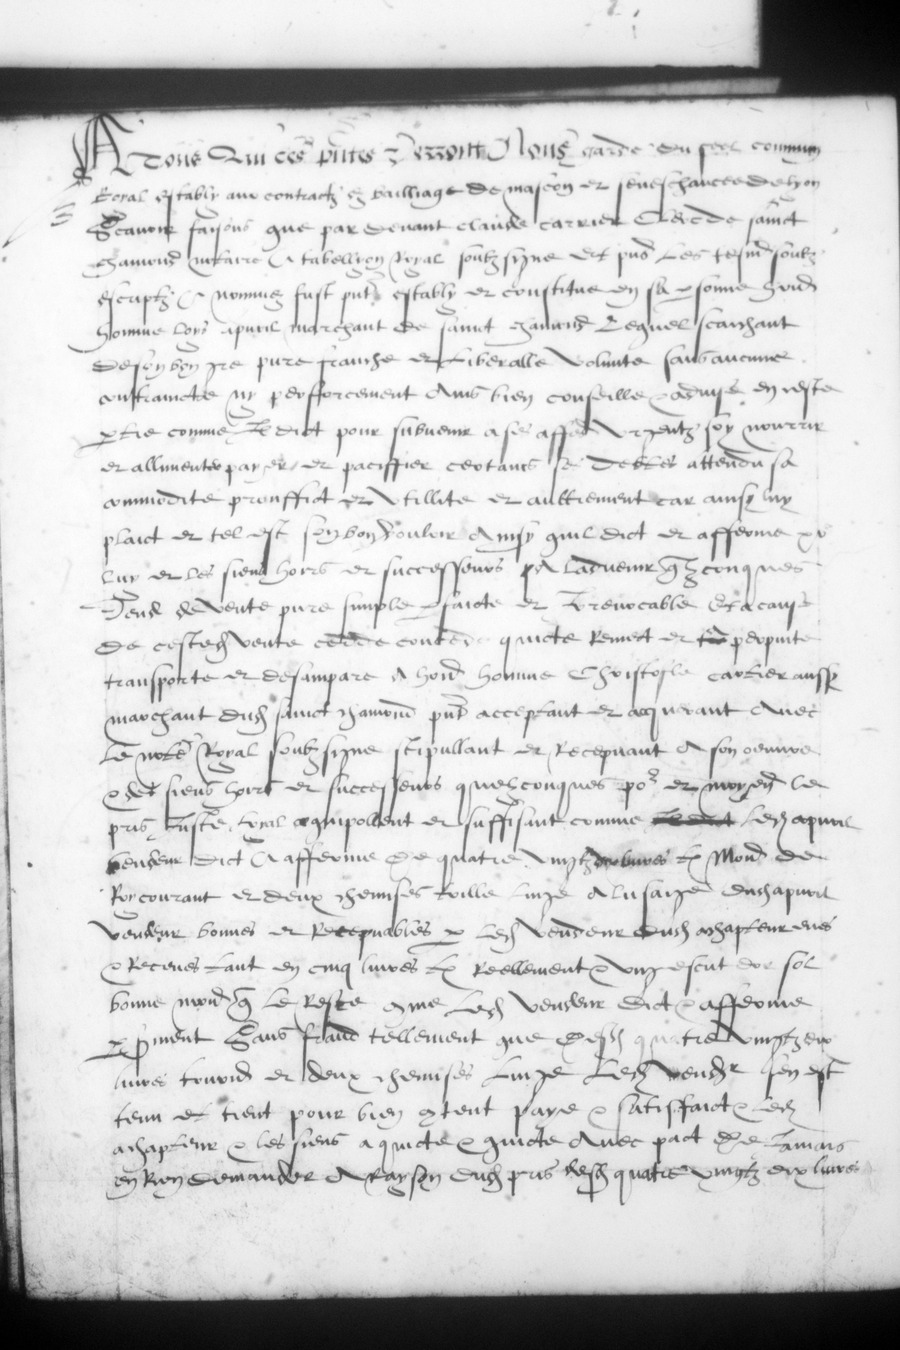 A Tous Qui ces pntes verront Nous garde du seel commun
Royal estably aux contractz es bailliage de mascon et seneschaucee de lyon
Scavoir faisons que par devant claude carrier Clerc de sainct
chamond notaire & tabellyon Royal soubzsigne et pns les tesmd soubz
escriptz & nommez fust pnt estably et constitue en sa psonne hond
homme loys apvril marchant de sainct chamond Lequel scaichant
de son bon gre pure franche et liberalle volunte sans aucune
contraincte ny perfforcement Ains bien conseille & advise en ceste
ptie comme Il dict pour subvenir a ses affes urgentz soy nourrir
et allimenter payer et paciffier certains ses debtes attendu sa
commodite prouffict et utillite et aultrement car ainsy luy
plaict et tel est son bon vouloir Ainsy quil dict et afferme pr
luy et les siens hoirs et successeurs A ladvenir qzconques
Vend de vente pure simple pfaicte et Irrevocable Et a cause
de ceste vente cedde concede quicte Remect et perpinte
transporte et desampare A hond homme Christofle carrier aussy
marchant dud sainct chamond pnt acceptant et acquerant Avec
le notre Royal soubzsigne stipullant et Recepvant A son oeuvre
& des siens hoirs et successeurs quelzconques por et moyen le
pris Juste loyal equipollent et suffisant comme led apvril
vendeur dict & afferme de quatre vingtz dix livres tz Mond de
Roy courant et deux chemises toille linge A lusaige dud apvril
vendeur bonnes et Recepvables p led vendeur dud achapteur eues
& Receues tant en cinq livres tz Reellement & ung escut dor sol
bonne mond q le Reste come led vendeur dict & afferme
ppment Sans fraud tellement que desd quatre vingtz dix
livres tournd et deux chemises linge led vendr sen est
tenu et tient pour bien gtent paye & satisffaict & led
achapteur & les siens aquicte & quicte Avec pact de Jamais
en Rien demander A Rayson dud pris desd quatre vingtz dix livres